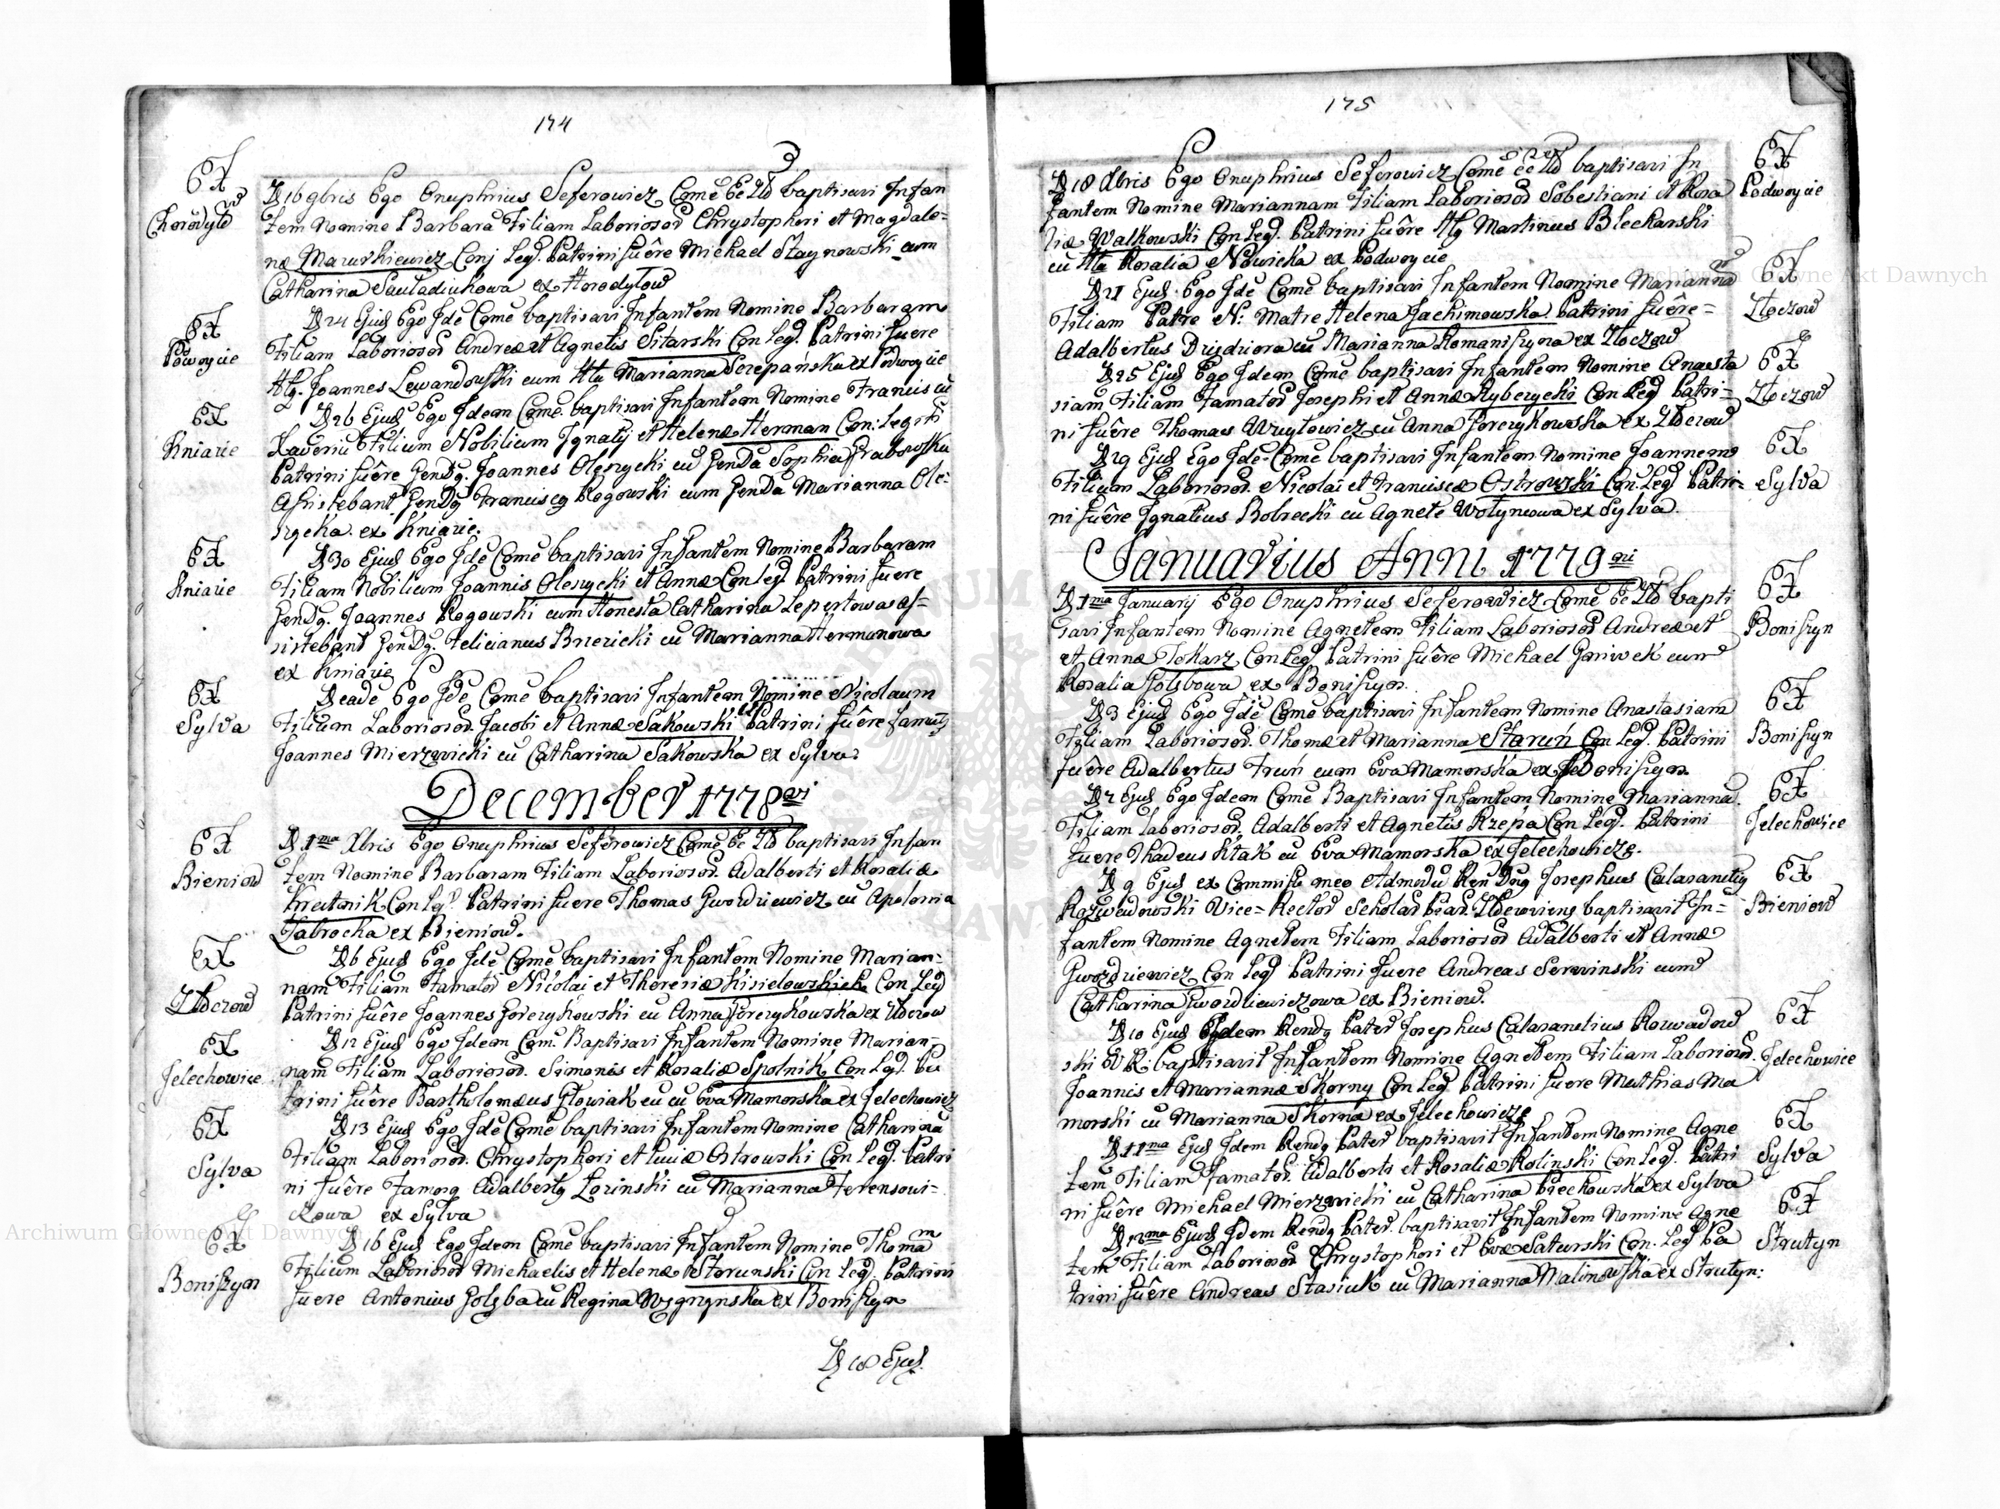 174
6X
Chorodyło
D 16 9bris Ego Onuphrius Seferowicz Come Ec Zło baptisavi Infan
tem Nomine Barbara Filiam Laboriosor Chrystophori et Magdale-
næ Mawrkiewicz Conj Leg. Patrini fuêre Michael Staynowski cum
Catharina ex Horodyłow
6X
Podwoycie
D 24 Ejusd Ego Idē Comē baptisavi Infantem Nomine Barbaram
Filiam Laboriosor Andreæ et Agnetis Sitarski Con Leg. Patrini fuere
Hg. Joannes Lewandowski cum Hta Marianna Szczepańska ex Podwoycie
6X
Kniaźie
D 26 Ejusd Ego Idem Comē baptisavi Infantem Nomine Franciscū
Xaveriū Filium Nobilium Ignatij et Helenæ Herman Con: Legit:
Patrini fuêre Gendg. Joannes Olęzycki cū Genda Sophia Grabowska
Assistebant Gendg Franciscg Rogowski cum Genda Marianna Olę-
zycka ex Kniaźie.
6X
Kniaźie
D 30 Ejusd Ego Idē Comē baptisavi Infantem Nomine Barbaram
Filiam Nobilium Joannis Olęzycki et Annæ Con Leg Patrini fuere
Gendg. Joannes Rogowski cum Honesta Catharina Lepertowa as-
sistebant Gendg. Felicianus Brzezicki cū Marianna Hermanowa
ex Kniaźie
6X
Sylva
D eadē Ego Idē Comē baptisavi Infantem Nomine Nicolaum
Filium Laboriosor Jacobi et Annæ Sakowski Patrini fuêre famatg
Joannes Mierzwicki cū Catharina Sakowska ex Sylva.
December 1778vi
6X
Bieniow
D 1ma Xbris Ego Onuphrius Seferowicz Comē Ec Zło baptisavi Infan
tem Nomine Barbaram Filiam Laboriosor. Adalberti et Rosaliæ
Krectnik Con Leg Patrini fuere Thomas Gwozdziewicz cū Apolonia
Zabrocka ex Bieniow.
6X
Złoczow
D 6 Ejusd Ego Idē Comē baptisavi Infantem Nomine Marian-
nam Filiam Famator Nicolai et Theresiæ Kisielowskich Con Leg
Patrini fuêre Joannes Gorczykowski cū Anna Gorczykowska ex Złoczow
6X
Jelechowice
D 12 Ejusd Ego Idem Com. Baptisavi Infantem Nomine Marian-
nam Filiam Laboriosor. Simonis et Rosaliæ Spolnik Con Leg. Pa
trini fuêre Bartholomæus Głowiak cū cū Eva Mamorska ex Jelechowicz
6X
Sylva
D 13 Ejusd Ego Idē Comē baptisavi Infantem Nomine Catharina
Filiam Laboriosor. Chrystophori et Luciæ Ostrowski Con Leg. Patri
ni fuêre Famosg Adalbertg Lozinski cū Marianna Ferensowi-
czowa ex Sylva
6X
Boniszyn
D 16 Ejusd Ego Idem Comē baptisavi Infantem Nomine Thomam
Filium Laboriosor Michaelis et Helenæ Storunski Con Leg Patrini
fuere Antonius Golzba cū Regina ex Boniszyn
D 18 Ejusd.
175
6X
Podwoycie
D 18 Xbris Ego Onuphrius Seferowicz Comē Ec Zło baptisavi In
fantem Nomine Mariannam Filiam Laboriosor Sobestiani et Rosa
liæ Walkowski Con Leg. Patrini fuêre Hg Martinus Bleckarski
cū Hta Rosalia Nowicka ex Podwoycie
6X
Złoczow
D 21 Ejusd. Ego Idē Comē baptisavi Infantem Nomine Marianna
Filiam Patre N: Matre Helena Jachimowska Patrini fuêre-
Adalbertus Dziedziora cū Marianna Romaniszyna ex Złoczow
6X
Złoczow
D 25 Ejusd Ego Idem Comē baptisavi Infantem Nomine Anasta
siam Filiam Famator Josephi et Annæ Rybczycki Con Leg Patri-
ni fuêre Thomas Wuytowicz cū Anna Gorczykowska ex Złoczow
6X
Sylva
D 29 Ejusd Ego Idē Comē baptisavi Infantem Nomine Joannem
Filium Laboriosor. Nicolai et Franciscæ Ostrowski Con: Leg Patri-
ni fuêre Ignatius Bobrecki cū Agnete Wołyncowa ex Sylva.
Januarius Anni 1779ni
6X
Boniszyn
D 1ma Januarij Ego Onuphrius Seferowicz Comē Ec Zło bapti
savi Infantem Nomine Agnetem Filiam Laboriosor Andreæ et
et Annæ Tokarz Con Leg Patrini fuêre Michael Gawiek cum
Rosalia Golzbowa ex Boniszyn.
6X
Boniszyn
D 3 Ejusd Ego Idē Comē baptisavi Infantem Nomine Anastasiam
Filiam Laboriosor. Thomæ et Marianna Staruń Con Leg. Patrini
fuêre Adalbertus Truń cum Eva Mamorska ex Boniszyn.
6X
Jelechowice
D 7 Ejusd Ego Idem Comē Baptisavi Infantem Nomine Marianna.
Filiam Laboriosor. Adalberti et Agnetis Rzepa Con Leg. Patrini
fuere Thadeus Ktak cū Eva Mamorska ex Jelechowicze.
6X
Bieniow
D 9 Ejusd ex Commissu meo Admodū Ren Dng Josephus Calasanctig
Rozwadowski Vice-Rector Scholar Piar. Złoczoviens baptisavit In-
fantem Nomine Agnetem Filiam Laboriosor Adalberti et Annæ
Gwozdziewicz Con Leg Patrini fuere Andreas Serwinski cum
Catharina Gwozdziewiczowa ex Bieniow.
6X
Jelechowice
D 10 Ejusd Idem Rendg Pater Josephus Calasanctius Rozwadow
ski V R. baptisavit Infantem Nomine Agnetem Filiam Laboriosor.
Joannis et Mariannæ Skorny Con Leg. Patrini fuere Mathias Ma
morski cū Marianna Skorna ex Jelechowicze
6X
Sylva
D 11ma Ejusd Idem Rendg Pater baptisavit Infantem Nomine Agne
tem Filiam Famator. Adalberti et Rosaliæ Rolinski Con Leg. Patri
ni fuêre Michael Mierzwicki cū Catharina Piechowska ex Sylva
6X
Strutyn
D 12ma Ejusd Idem Rendg Pater. baptisavit Infantem Nomine Agne
tem Filiam Laboriosor Chrystophori et Evæ Saturski Con. Leg Pa
trini fuêre Andreas Stasiuk cū Marianna Malinowska ex Strutyn:
Archiwum Główne Akt Dawnych
Archiwum Główne Akt Dawnych